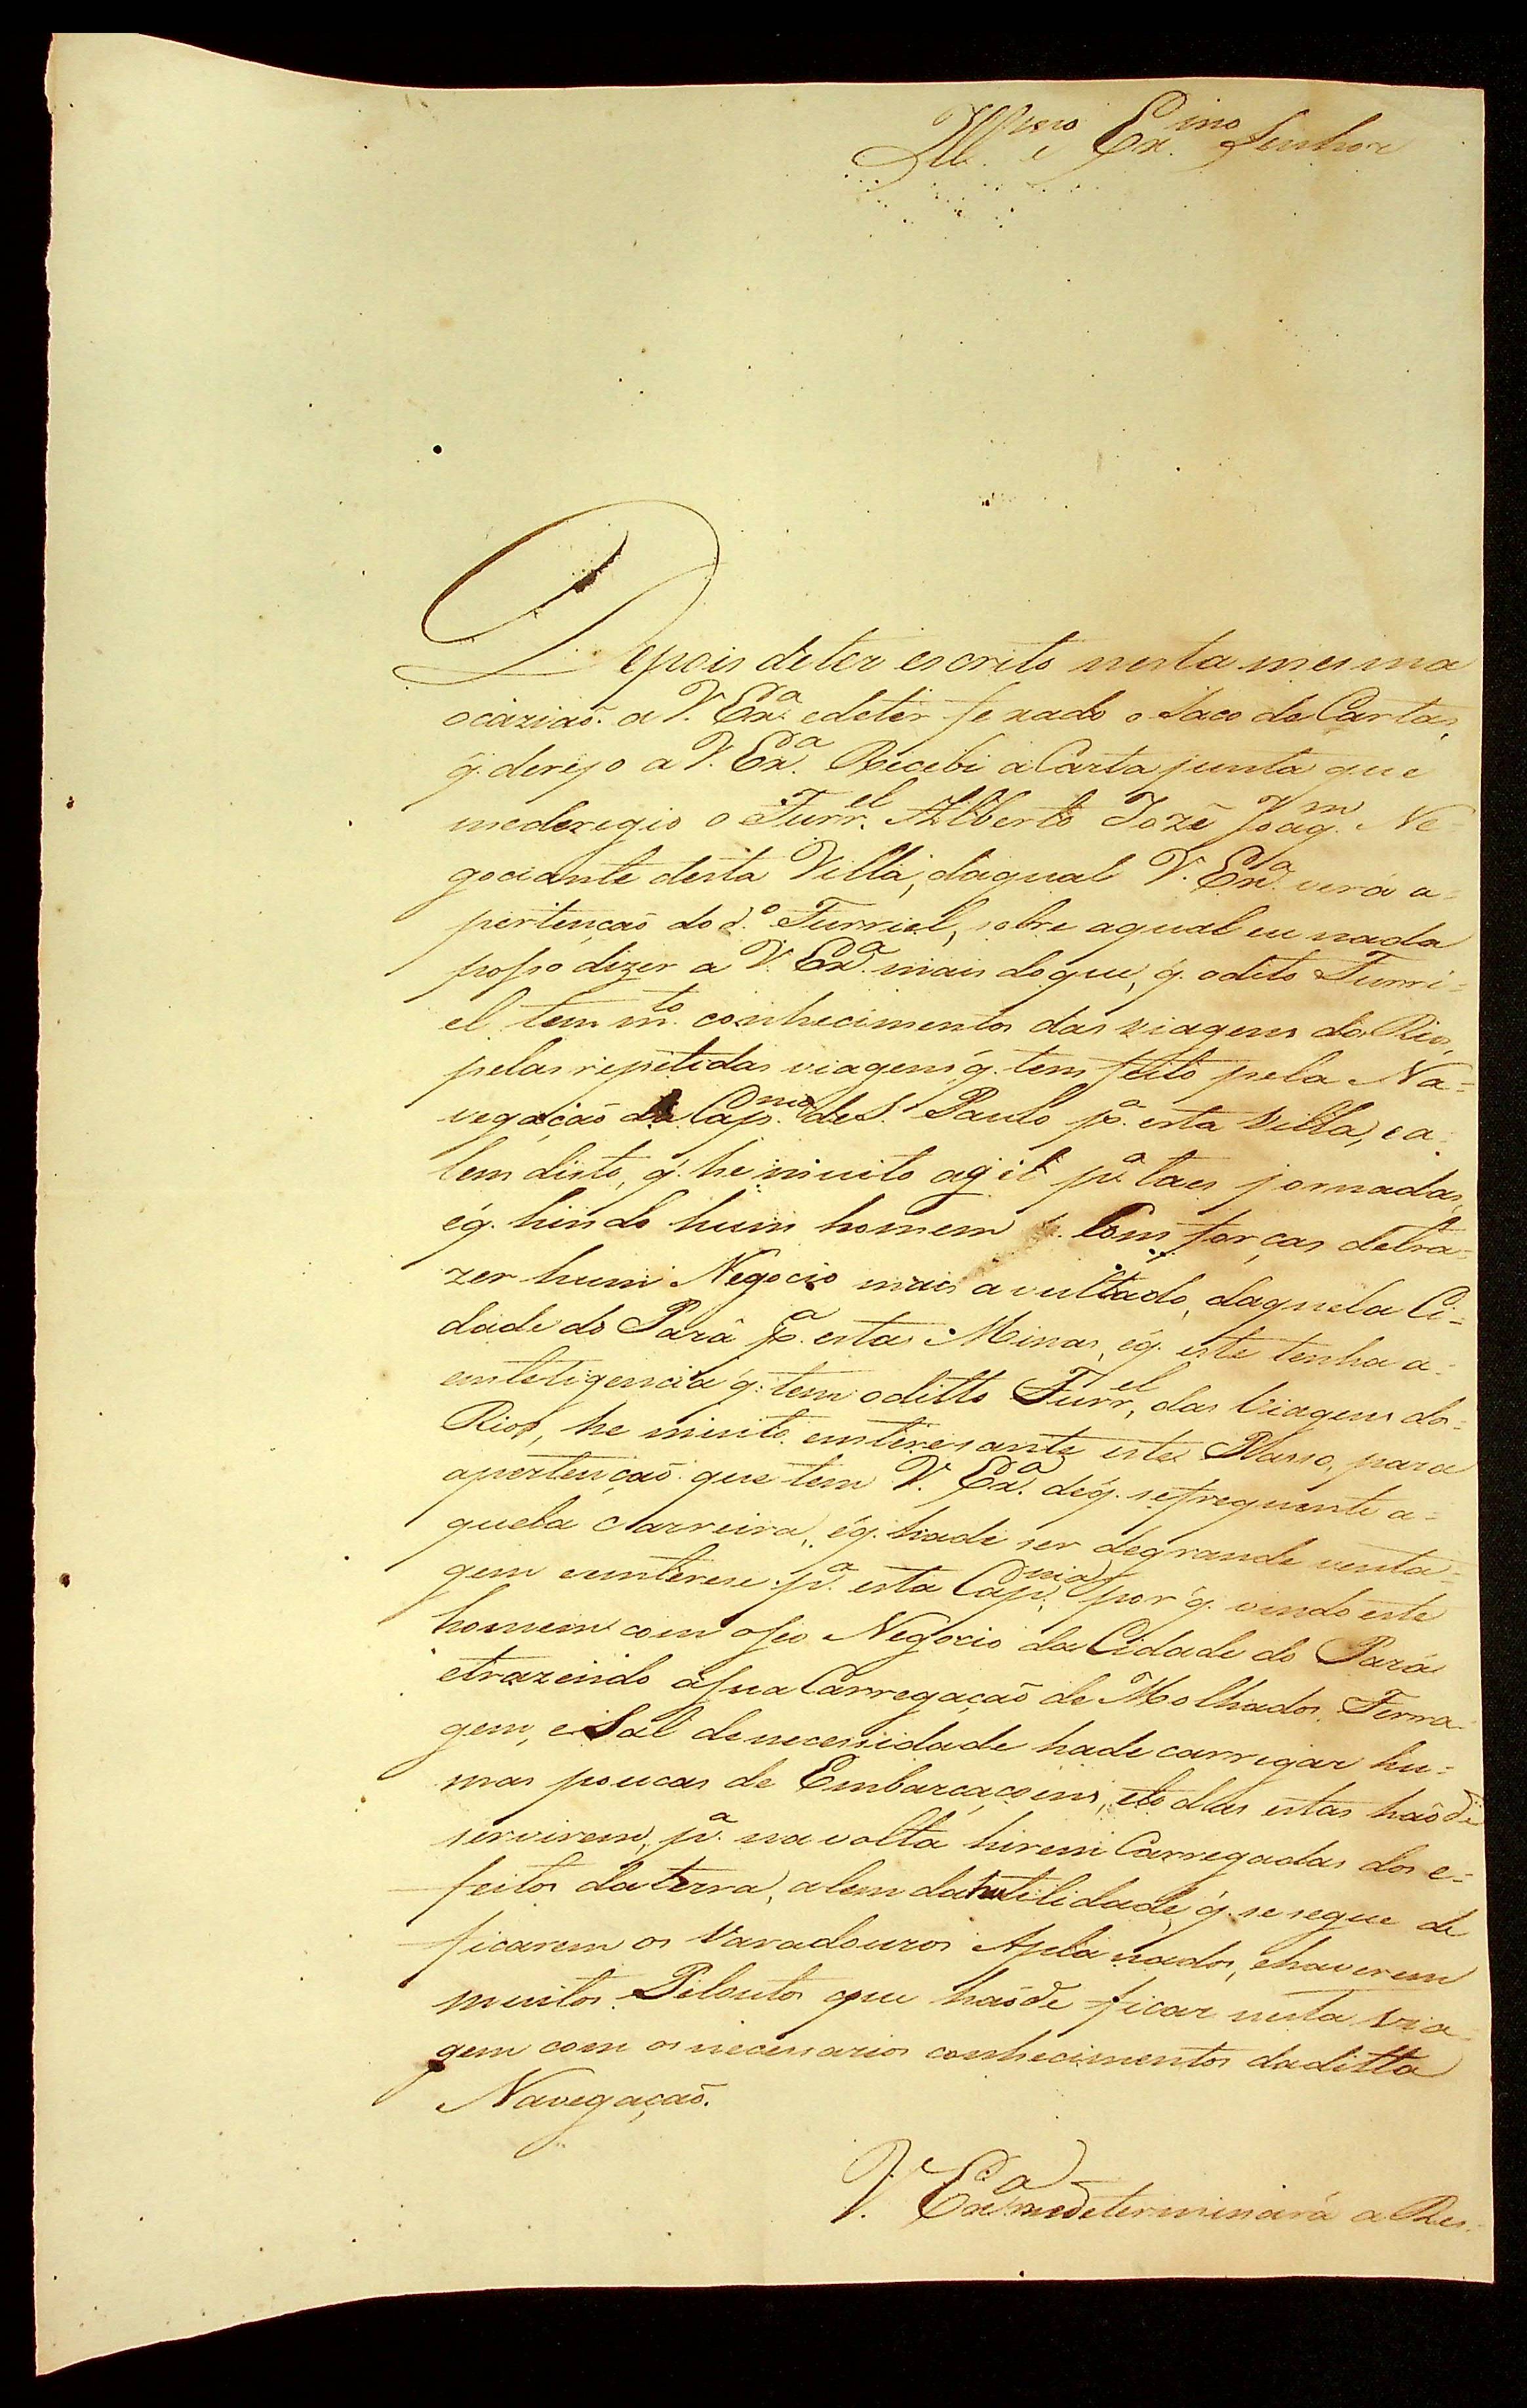 Ill.mo e Ex.mo Senhor
Depois deter escrito nesta mesma
ocaziaõ. a V. Ex.a edeter fexado o Saco de Cartas,
q̃. derejo a V. Ex.a Recebi aCarta junta que
mederegio o Furr.el Alberto Jozê Joaq.m Ne=
gociante desta Villa, daqual V. Ex.a verá a=
pertençaõ do d.o Furriel, sobre aqual eu nada
posso dizer a V. Ex.a mais doque, q̃. odito Furri=
el tem m.to conhecimentos das viagens dos Rios,
pelas repetidas viagens q̃. tem feito pela Na=
vegação da Cap.nia de S. Paulo p.a esta Villa, ea=
lem disto, q̃. he muito agil p.a taes jornadas,
éq̃. hindo hum homem Com forças detra=
zer hum Negocio mais avultado, daquela Ci=
dade do Parâ p.a estas Minas, éq̃. este tenha a=
enteligencia q̃. tem oditto Furr.el, das Viagens do=
Rios, he muito enteresante este Passo, para
apertençaõ que tem V. Ex.a déq̃. sefrequente a=
quela Carreira, éq̃. hade ser degrande venta=
gem eenterese p.a esta Cap.nia por q̃. vindo este
homem com oseo Negocio da Cidade do Pará
etrazendo asua Carregaçaõ de Molhados, Ferra=
gem, e Sal denecessidade hade carregar hu=
mas poucas de Embarcaçoens, etodas estas haõde
servirem, p.a navolta hirem Carregadas dos e=
feitos daterra, alem dahutilidade q̃. se segue de
ficarem os Varadouros Aplanados, ehaverem
muitos Piloutos que haõde ficar nesta via=
gem com os necessarios conhecimentos daditta
Navegaçaõ.
V. Ex.a medeterminará a Res=